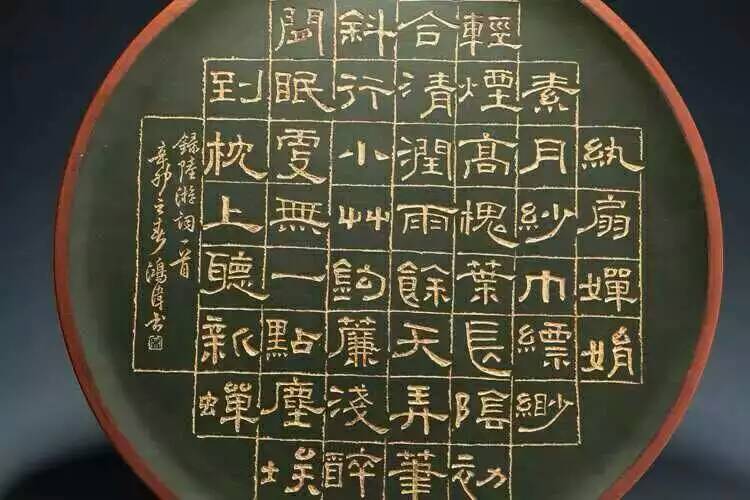 紈扇嬋娟
素月紗巾縹緲
輕煙高槐葉長陰初
合清潤雨餘天弄筆
斜行小艸鉤簾淺醉
閒眠更無一點塵埃
到枕上聽新蟬
錄陸游詞一首
辛卯之春鴻偉書